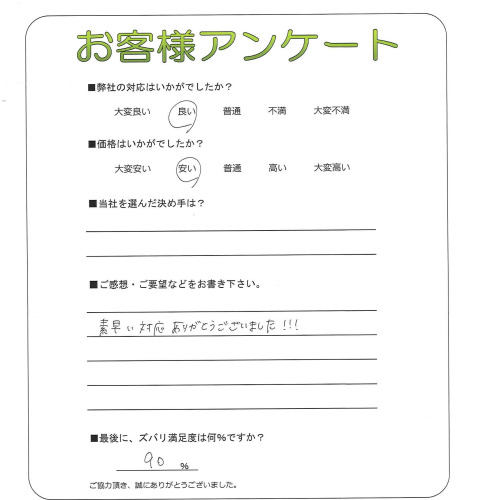 お客様アンケート
■弊社の対応はいかがでしたか？
大変良い 良い 普通 不満 大変不満
■価格はいかがでしたか？
大変安い 安い 普通 高い 大変高い
■当社を選んだ決め手は？
■ご感想・ご要望などをお書き下さい。
素早い対応ありがとうございました!!!
■最後に、ズバリ満足度は何%ですか？
90 %
ご協力頂き、誠にありがとうございました。